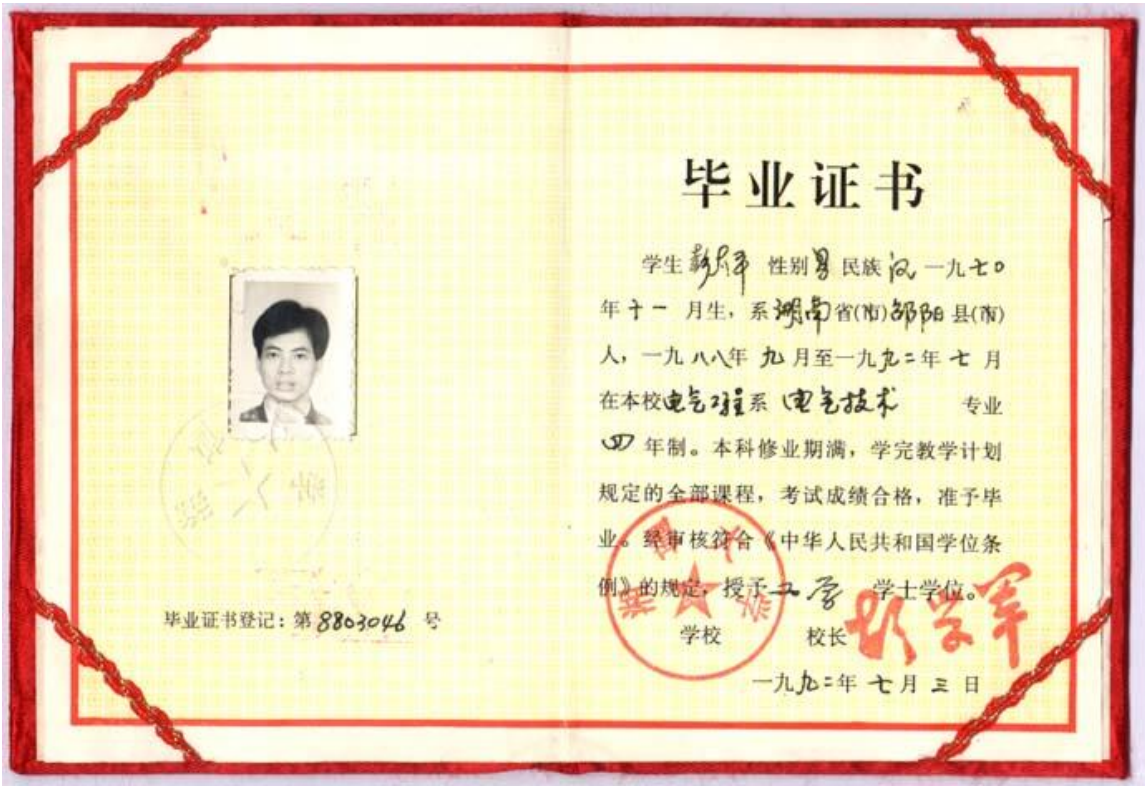 毕业证书
学生彭 平 性别男民族汉一九七〇
年十一月生，系湖南省(市)邵阳县(市)
人，一九八八年九月至一九九二年七月
在本校电气工程系电气技术 专业
四年制。本科修业期满，学完教学计划
规定的全部课程，考试成绩合格，准予毕
业。经审核符合《中华人民共和国学位条
例》的规定，授予工学 学士学位。
学校 校长
一九九二年七月三日
毕业证书登记：第8803046号